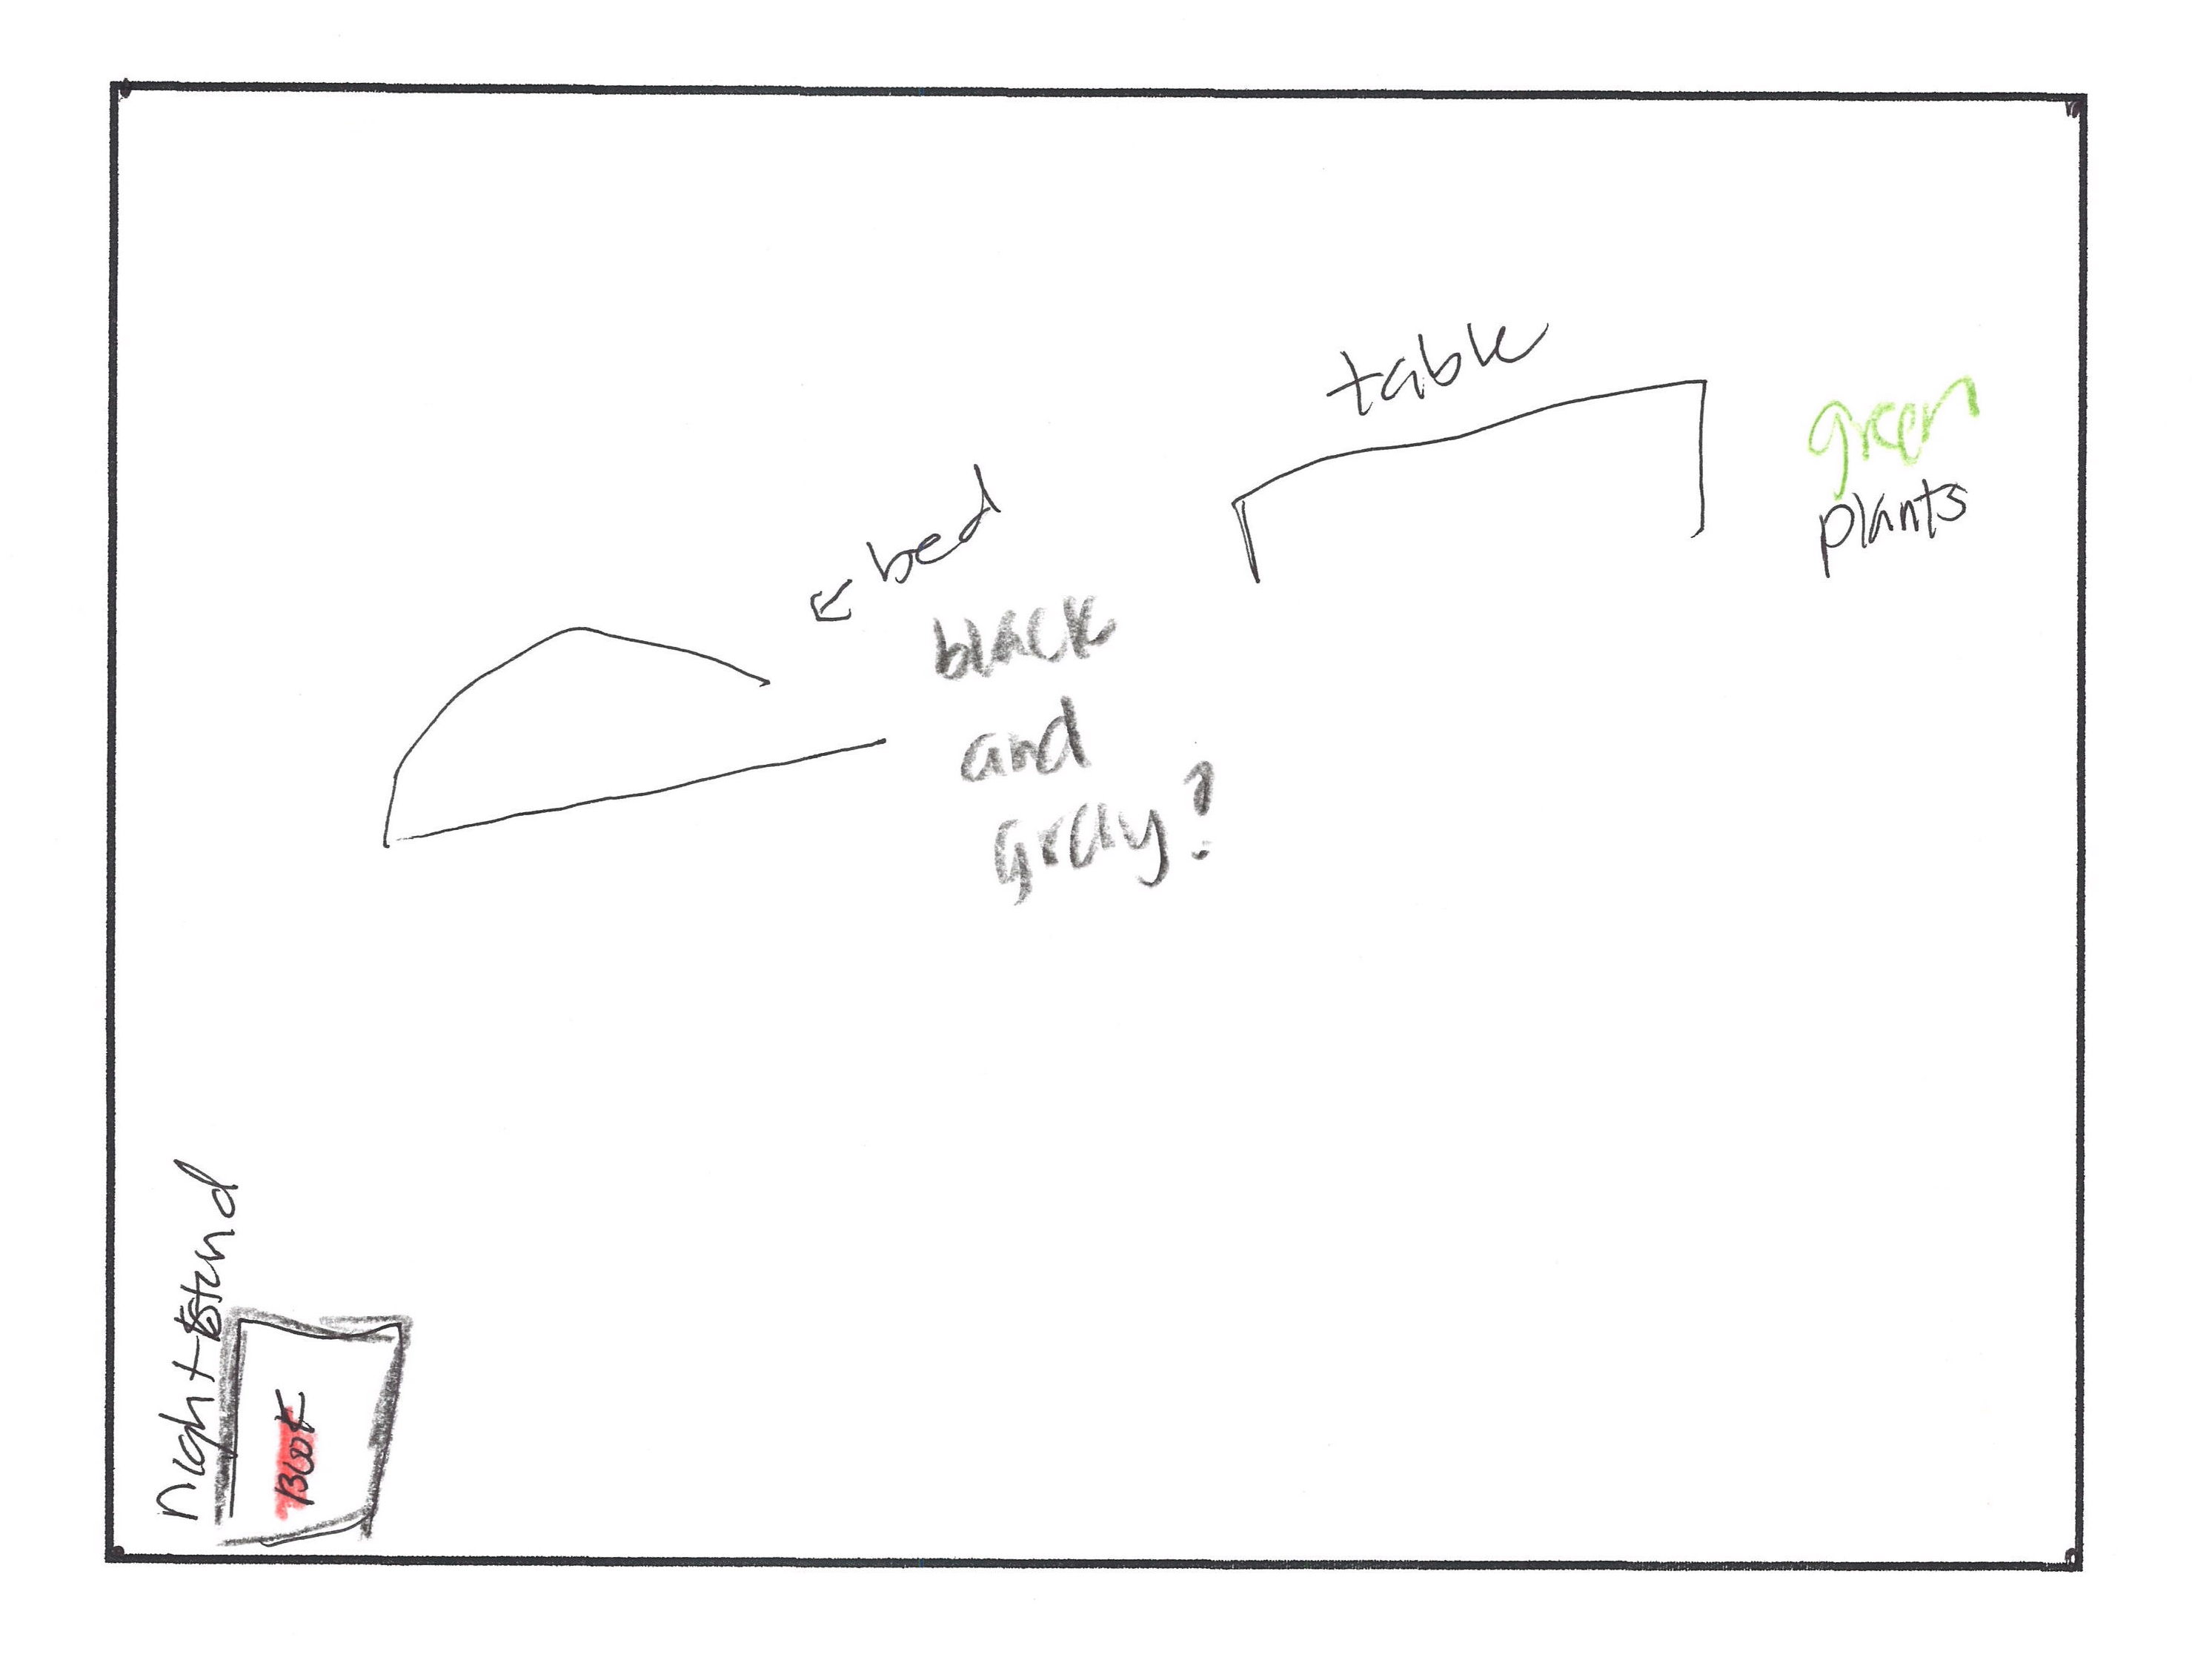 table
green
plants
bed
black
and
gray?
nightstand
Book